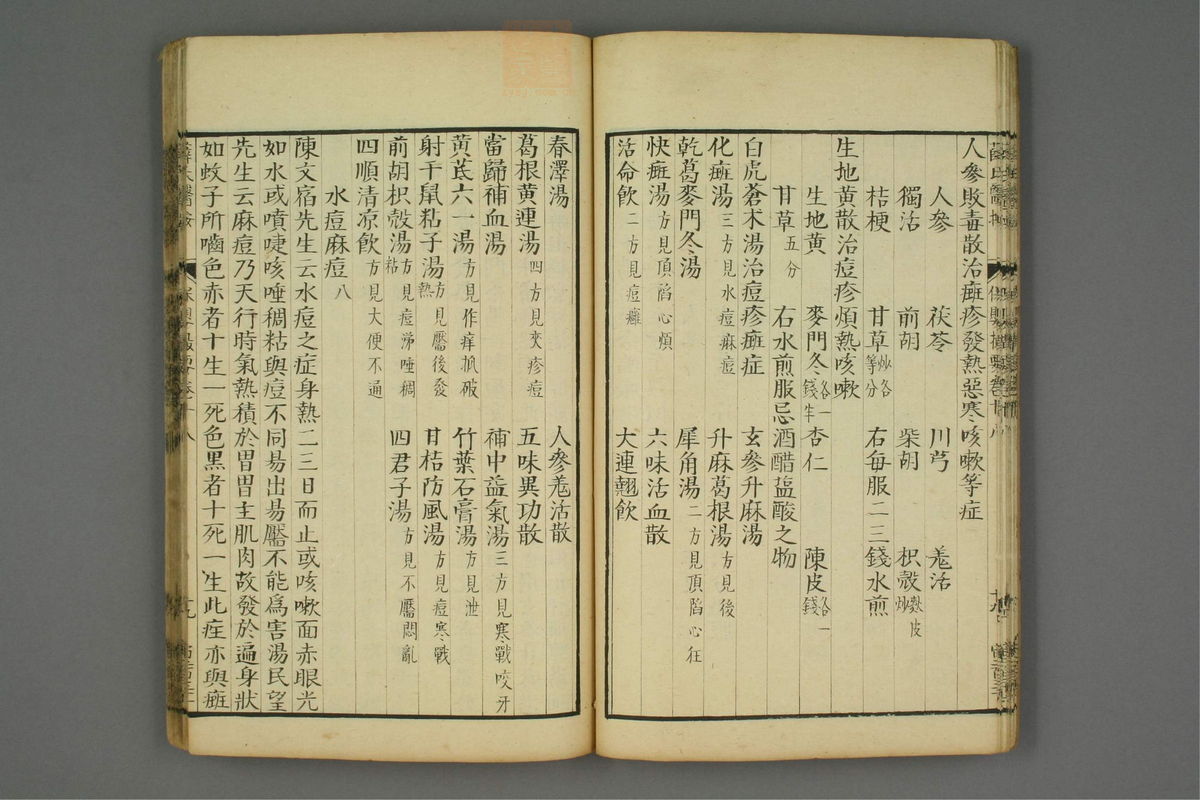 人參敗毒散治癍疹發熱惡寒咳嗽等症
人參 茯苓 川芎 羗活
獨活 前胡 柴胡 枳殼麩皮炒
桔梗 甘草炒各等分 右每服二三錢水煎
生地黃散治痘疹煩熱咳嗽
生地黃 麥門冬各一錢半 杏仁 陳皮各一錢
甘草五分 右水煎服忌酒醋盐酸之物
白虎蒼术湯治痘疹癍症 玄參升麻湯
化癍湯三方見水痘麻痘 升麻葛根湯方見後
乾葛麥門冬湯 犀角湯二方見頂陷心狂
快癍湯方見頂陷心煩 六味活血散
活命飲二方見痘癰 大連翹飲
春澤湯 人參羗活散
葛根黃連湯四方見夾疹痘 五味異功散
當歸補血湯 補中益氣湯三方見寒戰咬牙
黃芪六一湯方見作痒抓破 竹葉石膏湯方見泄
射干鼠粘子湯方見靨後發熱 甘桔防風湯方見痘寒戰
前胡枳殼湯方見痘涕唾稠粘 四君子湯方見不靨悶亂
四順清凉飲方見大便不通
水痘麻痘八
陳文宿先生云水痘之症身熱二三日而止或咳嗽面赤眼光
如水或噴啑咳唾稠粘與痘不同易出易靨不能爲害湯民望
先生云麻痘乃天行時氣熱積於胃胃主肌肉故發於遍身狀
如蚊子所嚙色赤者十生一死色黑者十死一生此症亦與癍